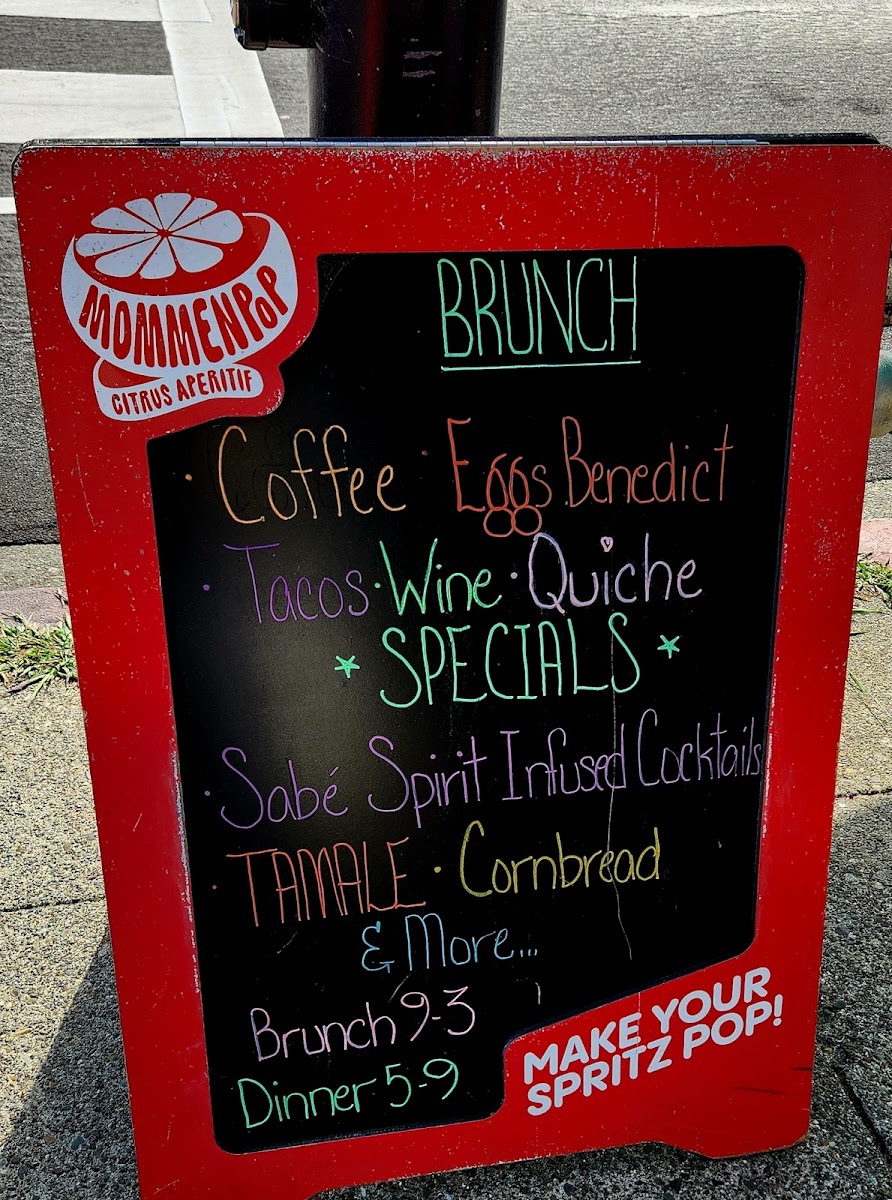 MOMMENPOP
CITRUS APERITIF
BRUNCH
· Coffee · Eggs Benedict
· Tacos · Wine · Quiche
* SPECIALS *
· Sabé Spirit Infused Cocktails
· TAMALE · Cornbread
& More...
Brunch 9-3
Dinner 5-9
MAKE YOUR
SPRITZ POP!